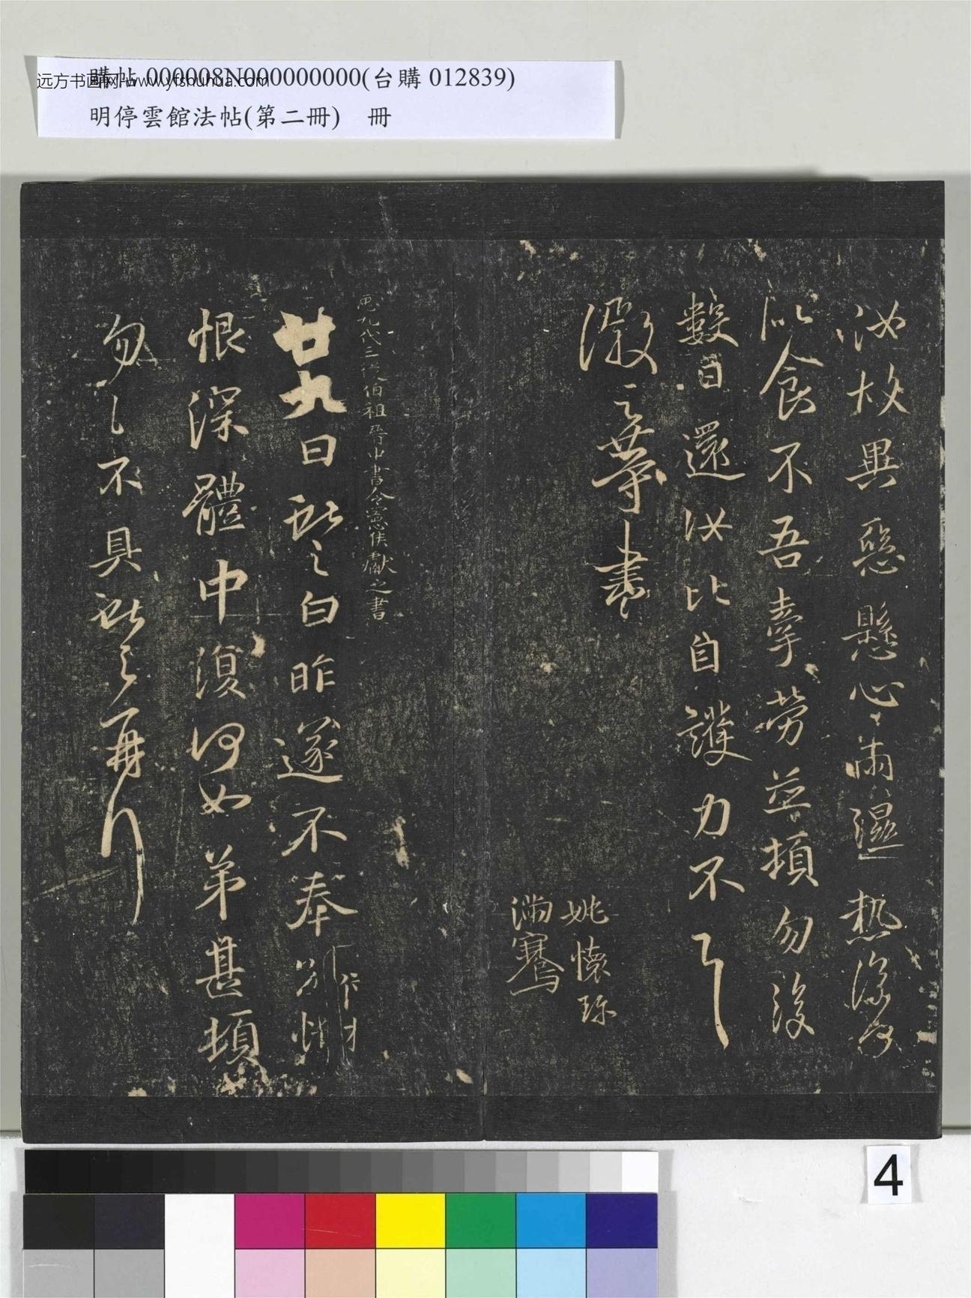 購帖 000008N000000000(台購 012839)
远方书画网 www.yfshuhua.com
明停雲館法帖(第二冊) 冊
汝故異惡懸心雨濕熱深何
以食不吾牽勞並頓勿復
數日還汝比自護力不
澂之等書
姚懷珍
滿騫
九代三從伯祖晉中書令憲侯獻之書
廿九日獻之白昨遂不奉別悵
恨深體中復何如弟甚頓
匆匆不具獻之再拜
4